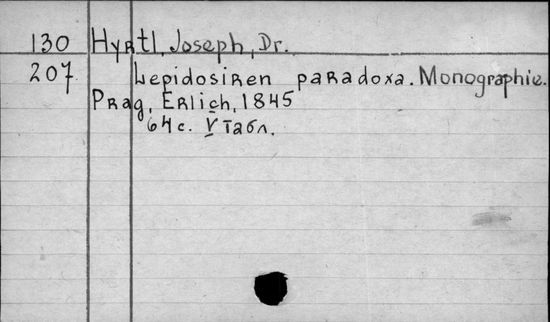 130 Hyrtl, Joseph, Dr.
207 Lepidosiren paradoxa. Monographie.
Prag, Erlich, 1845
64 с. V табл.